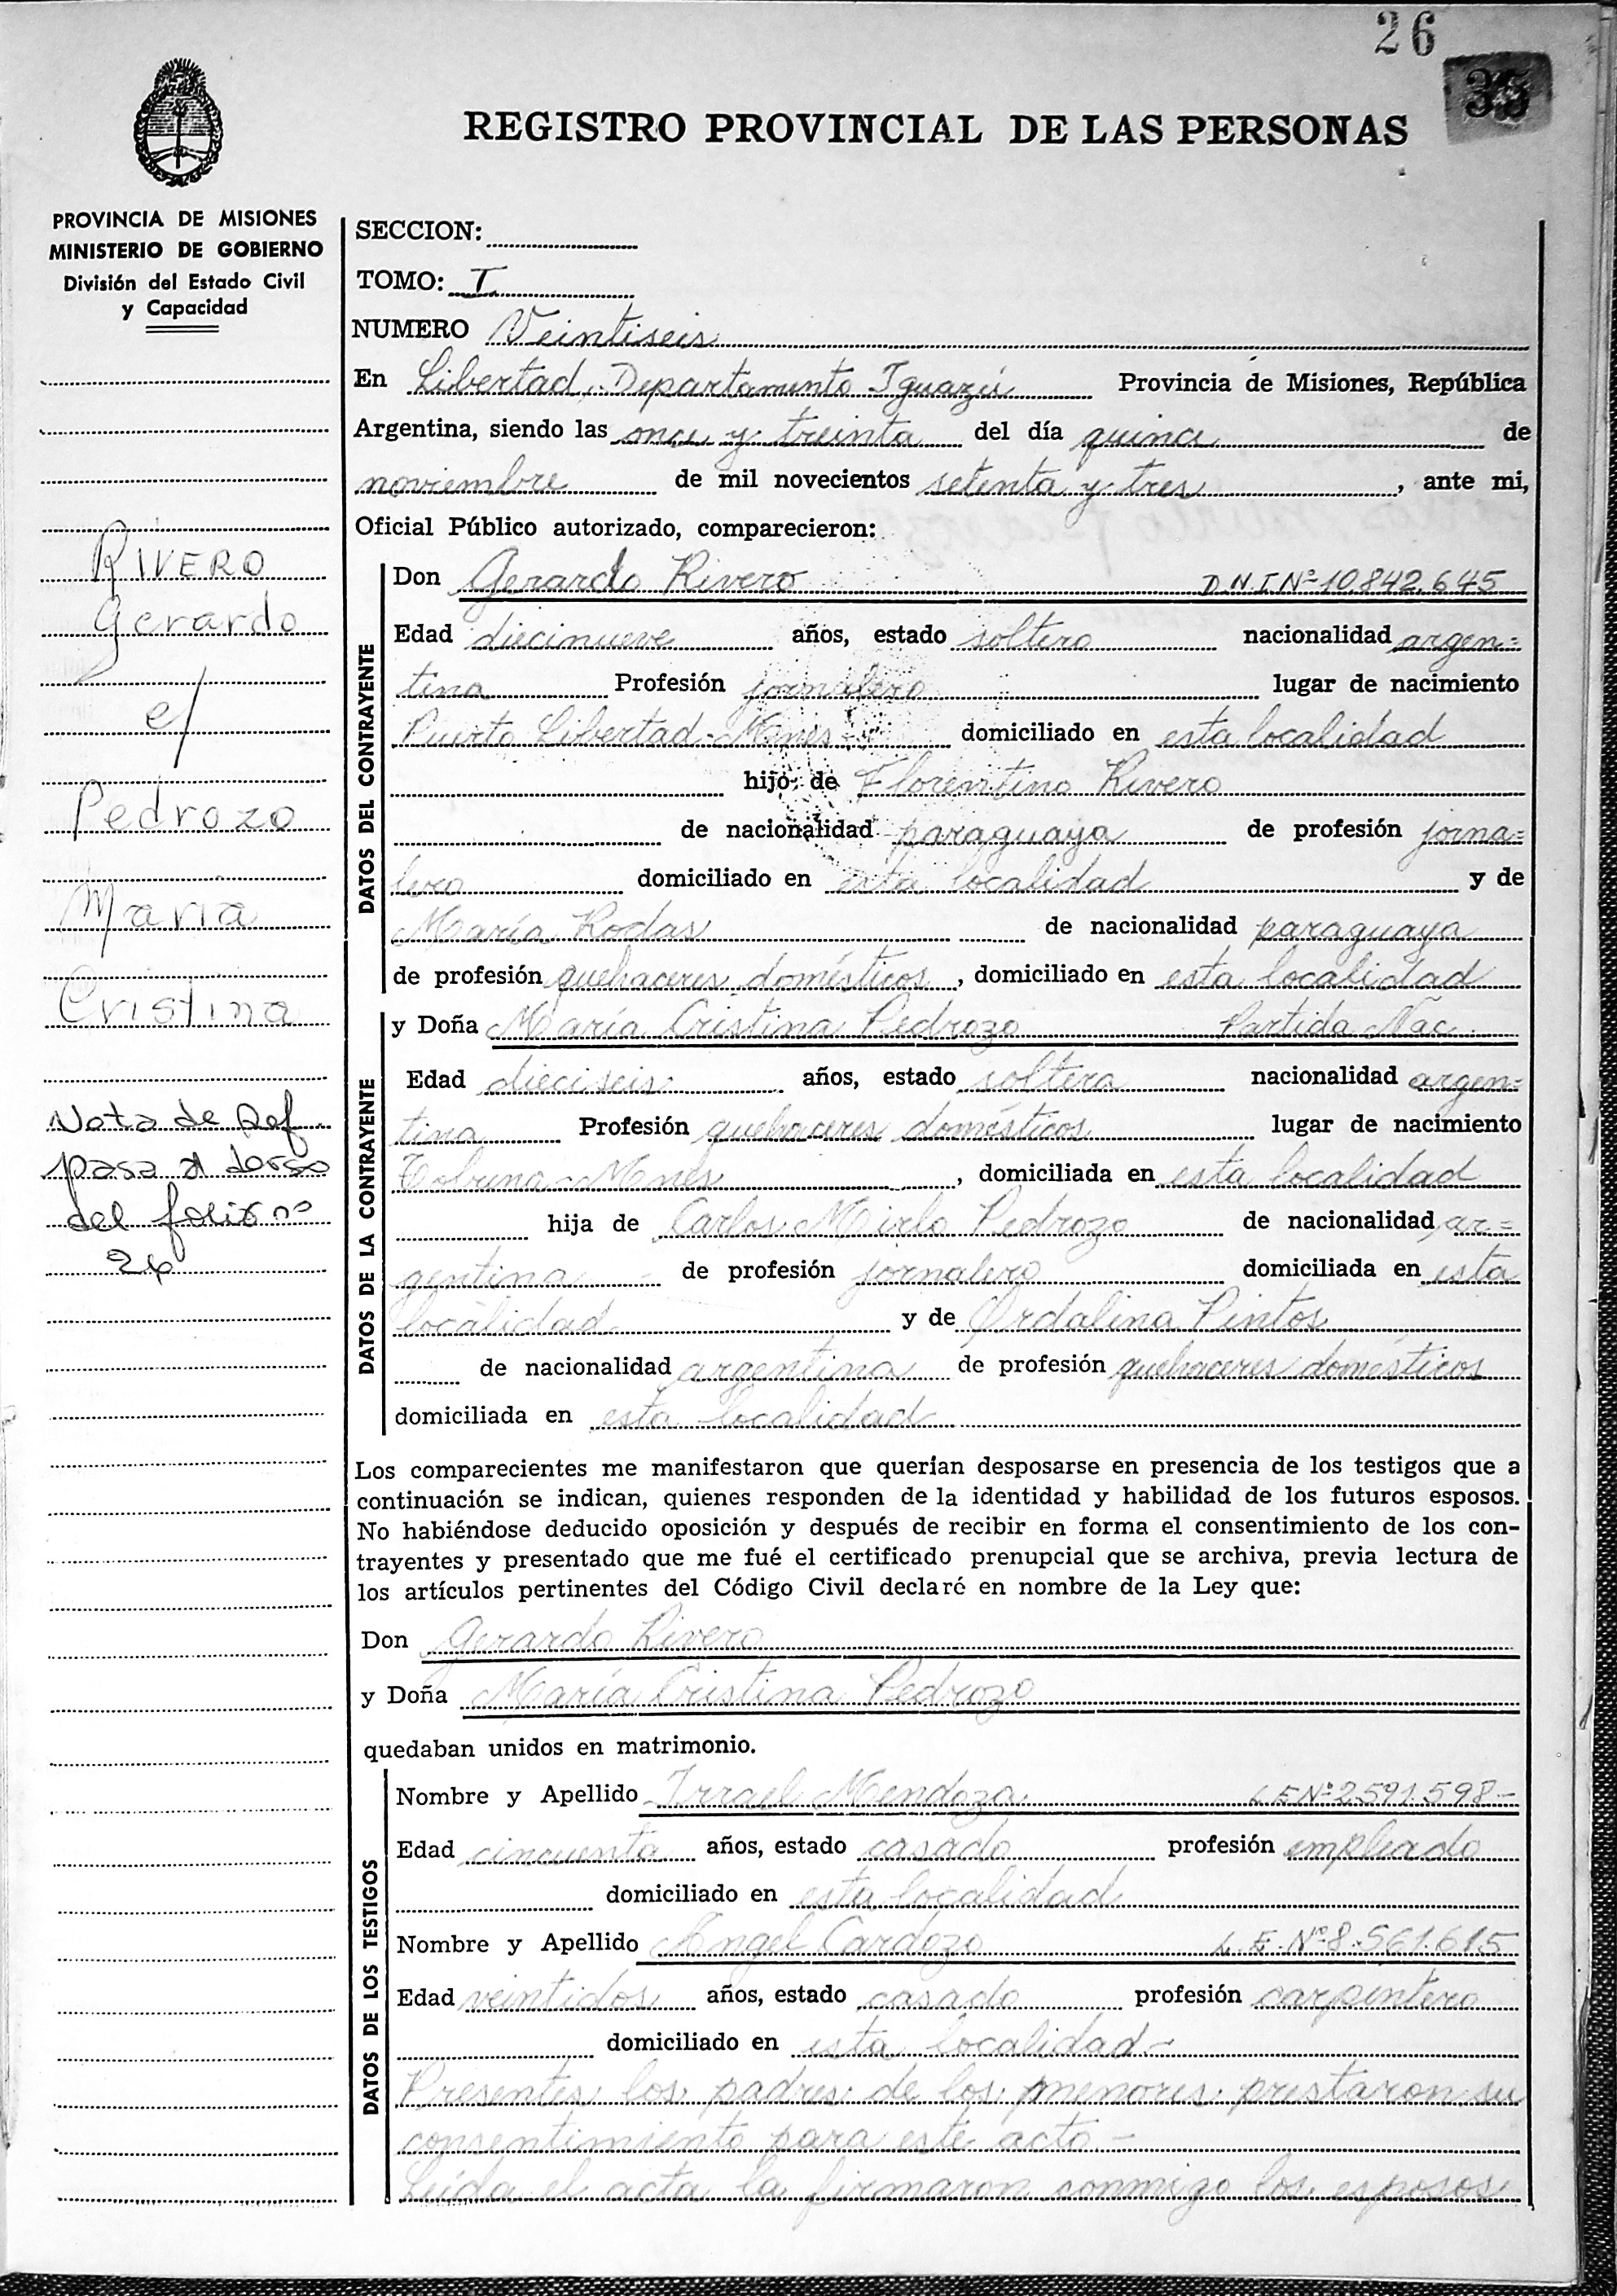 26
35
REGISTRO PROVINCIAL DE LAS PERSONAS
PROVINCIA DE MISIONES
MINISTERIO DE GOBIERNO
División del Estado Civil
y Capacidad
RIVERO
Gerardo
c/
Pedrozo
Maria
Cristina
Nota de Ref.
pasa al dorso
del folio nº
26
SECCION:
TOMO: I
NUMERO Veintiseis
En Libertad, Departamento Iguazú Provincia de Misiones, República
Argentina, siendo las once y treinta del día quince de
noviembre de mil novecientos setenta y tres, ante mi,
Oficial Público autorizado, comparecieron:
DATOS DEL CONTRAYENTE
Don Gerardo Rivero D.N.I.Nº 10.842.645
Edad diecinueve años, estado soltero nacionalidad argen=
tina Profesión jornalero lugar de nacimiento
Puerto Libertad-Mnes domiciliado en esta localidad
hijo de Florentino Rivero
de nacionalidad paraguaya de profesión jorna=
lero domiciliado en esta localidad y de
María Rodas de nacionalidad paraguaya
de profesión quehaceres domésticos, domiciliado en esta localidad
DATOS DE LA CONTRAYENTE
y Doña María Cristina Pedrozo Partida Nac.
Edad dieciseis años, estado soltera nacionalidad argen=
tina Profesión quehaceres domésticos lugar de nacimiento
Tobuna-Mnes, domiciliada en esta localidad
hija de Carlos Mirlo Pedrozo de nacionalidad ar=
gentina de profesión jornalero domiciliada en esta
localidad y de Ordalina Pintos
de nacionalidad argentina de profesión quehaceres domésticos
domiciliada en esta localidad
Los comparecientes me manifestaron que querían desposarse en presencia de los testigos que a
continuación se indican, quienes responden de la identidad y habilidad de los futuros esposos.
No habiéndose deducido oposición y después de recibir en forma el consentimiento de los con-
trayentes y presentado que me fué el certificado prenupcial que se archiva, previa lectura de
los artículos pertinentes del Código Civil declaré en nombre de la Ley que:
Don Gerardo Rivero
y Doña María Cristina Pedrozo
quedaban unidos en matrimonio.
DATOS DE LOS TESTIGOS
Nombre y Apellido Irrael Mendoza L E Nº 2.591.598-
Edad cincuenta años, estado casado profesión empleado
domiciliado en esta localidad
Nombre y Apellido Angel Cardozo L.E.Nº 8.561.615
Edad veintidos años, estado casado profesión carpintero
domiciliado en esta localidad-
Presentes los padres de los menores prestaron su
consentimiento para este acto-
Leída el acta la firmaron conmigo los esposos